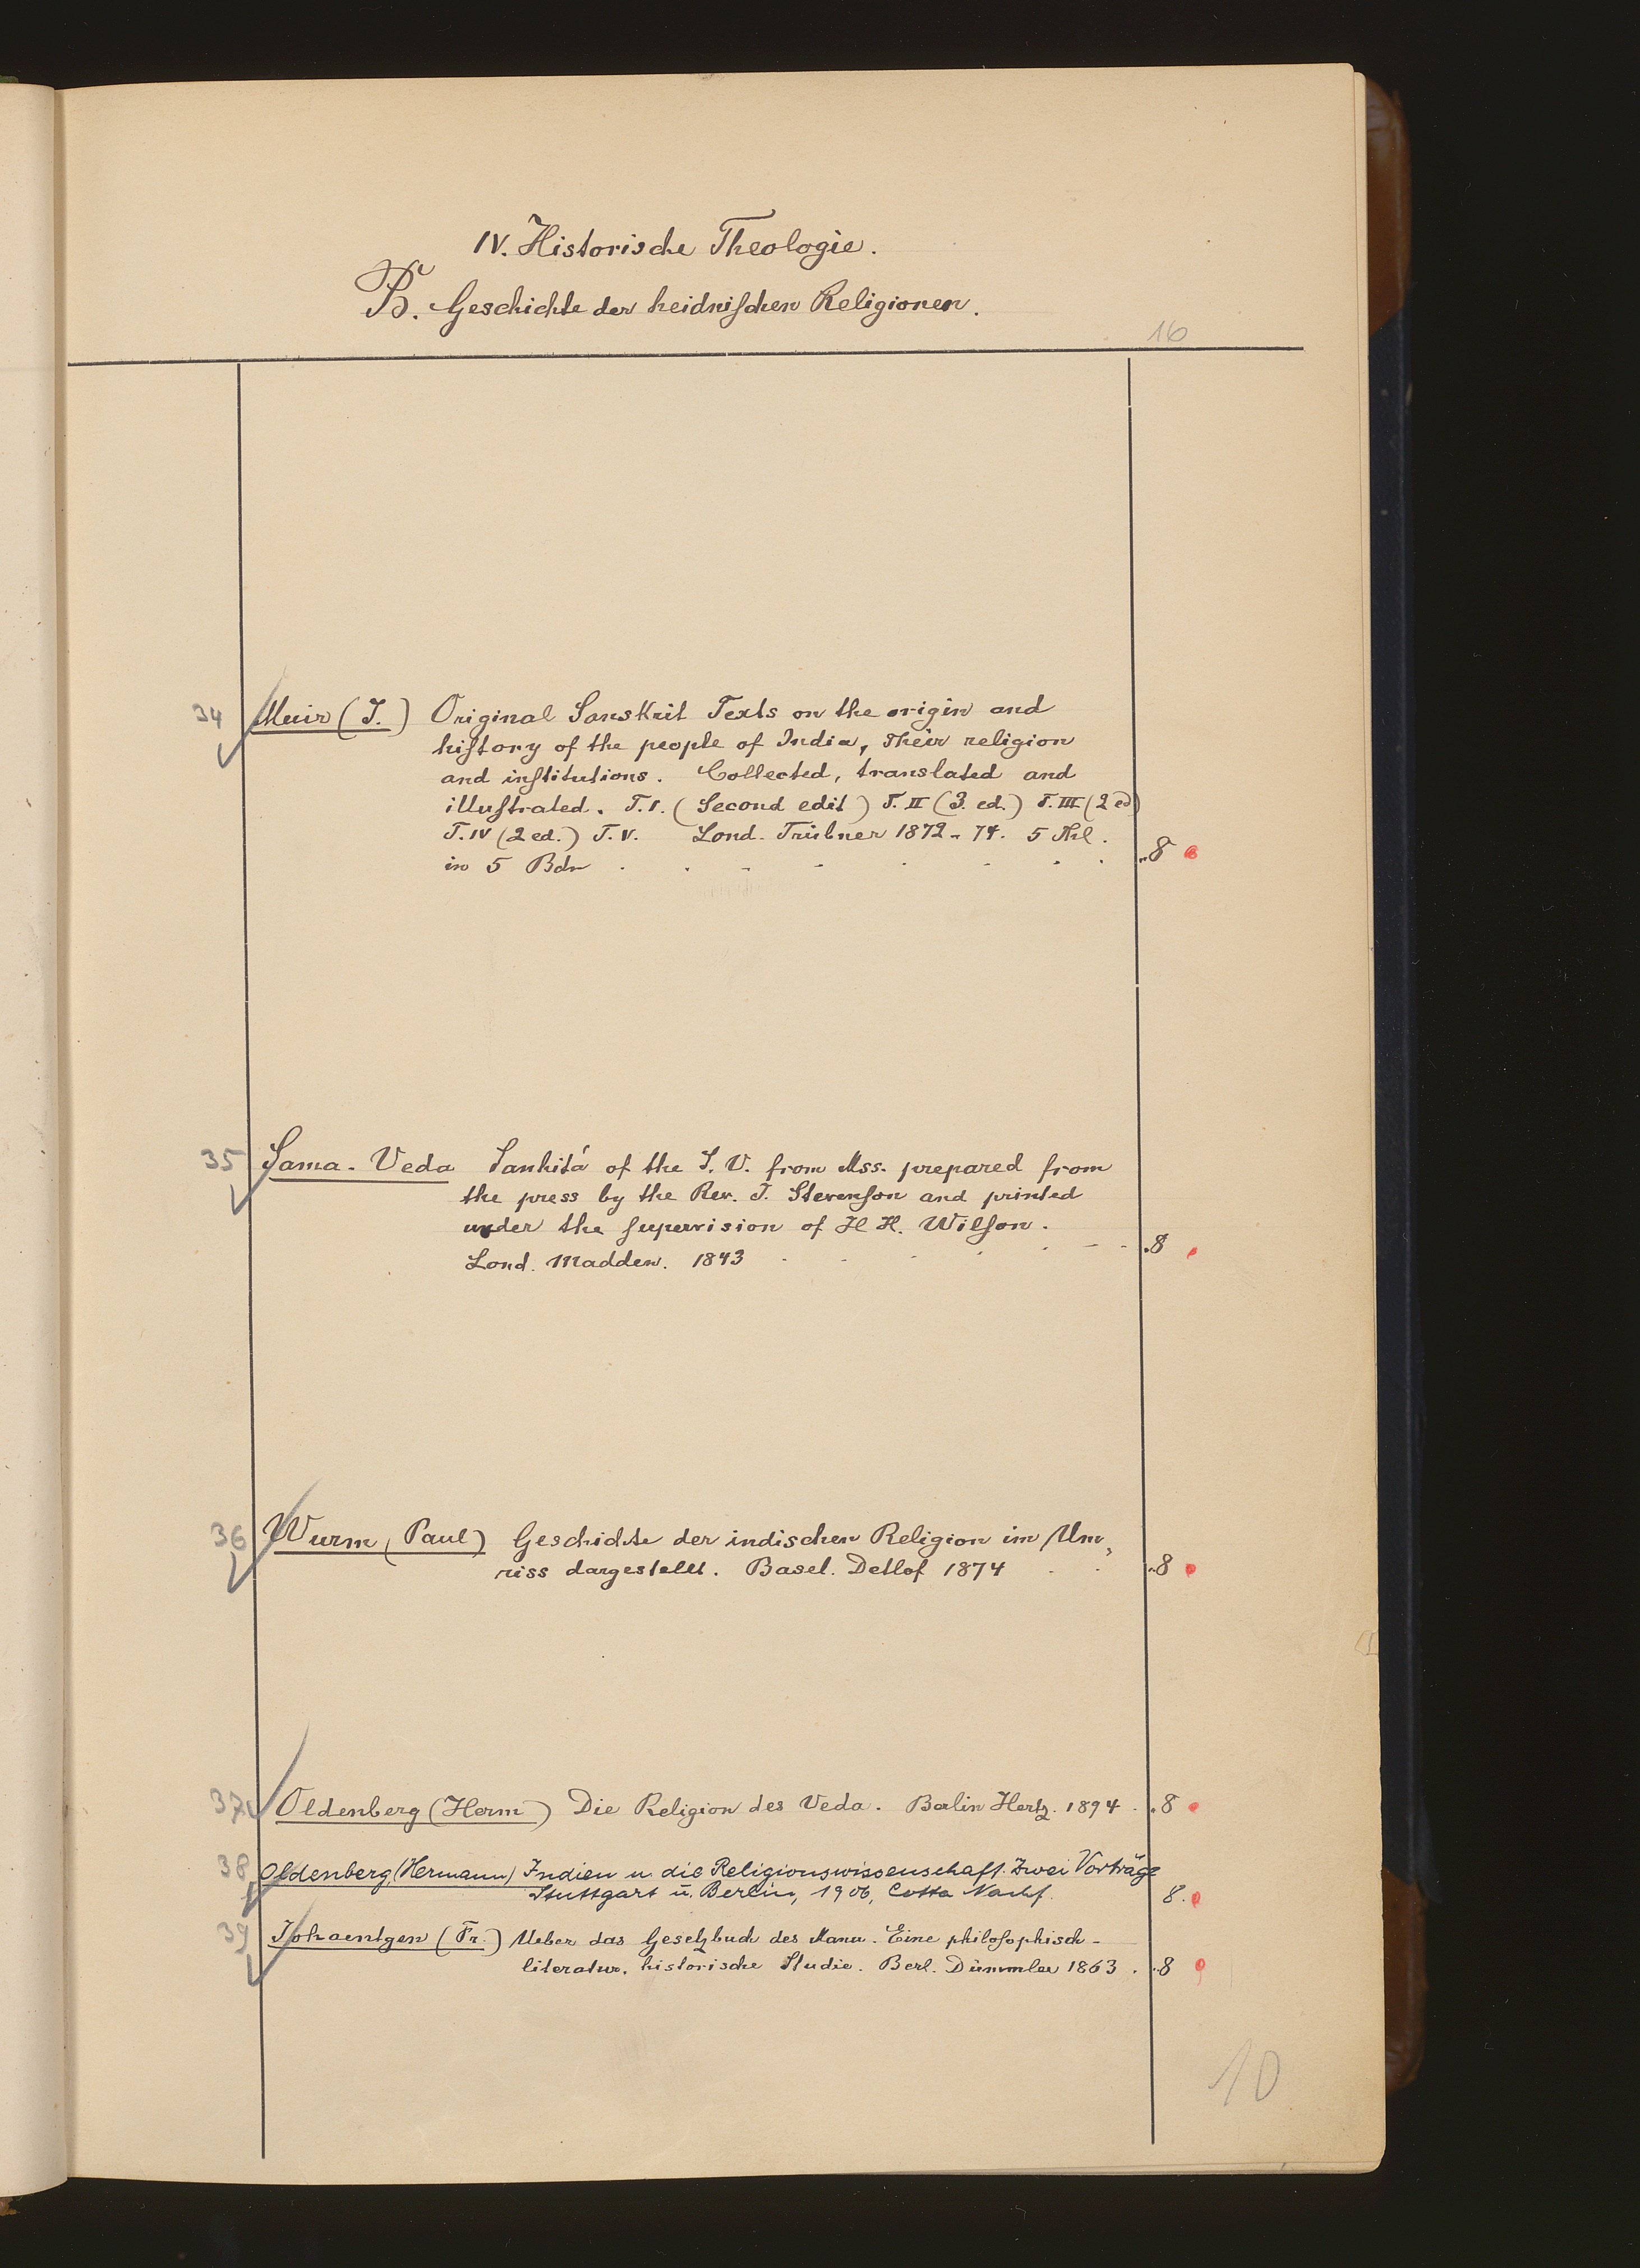 IV. Historische Theologie.
B. Geschichte der heidnischen Religionen.
16
34 Muir (J.) Original Sanskrit Texts on the origin and
history of the people of India, their religion
and institutions. Collected, translated and
illustrated. T.I. (Second edit) T.II (3. ed.) T.III (2 ed)
T.IV (2 ed.) T.V. Lond. Trübner 1872-74. 5 Thl.
in 5 Bdn . . . . . . . . 8
35 Sama-Veda Sanhitá of the S.V. from Mss. prepared from
the press by the Rev. J. Stevenson and printed
under the supervision of H H. Wilson.
Lond. Madden. 1843 . . . . . . . 8
36 Wurm (Paul) Geschichte der indischen Religion im Um-
riss dargestellt. Basel. Detlof 1874 . . . 8
37 Oldenberg (Herm) Die Religion des Veda. Berlin Hertz. 1894 . . 8
38 Oldenberg (Hermann) Indien u. die Religionswissenschaft. Zwei Vorträge
Stuttgart u. Berlin, 1906, Cotta Nachf. 8.
39 Johaentgen (Fr.) Ueber das Gesetzbuch des Manu. Eine philosophisch-
literatur. historische Studie. Berl. Dümmler 1863 . . 8
10